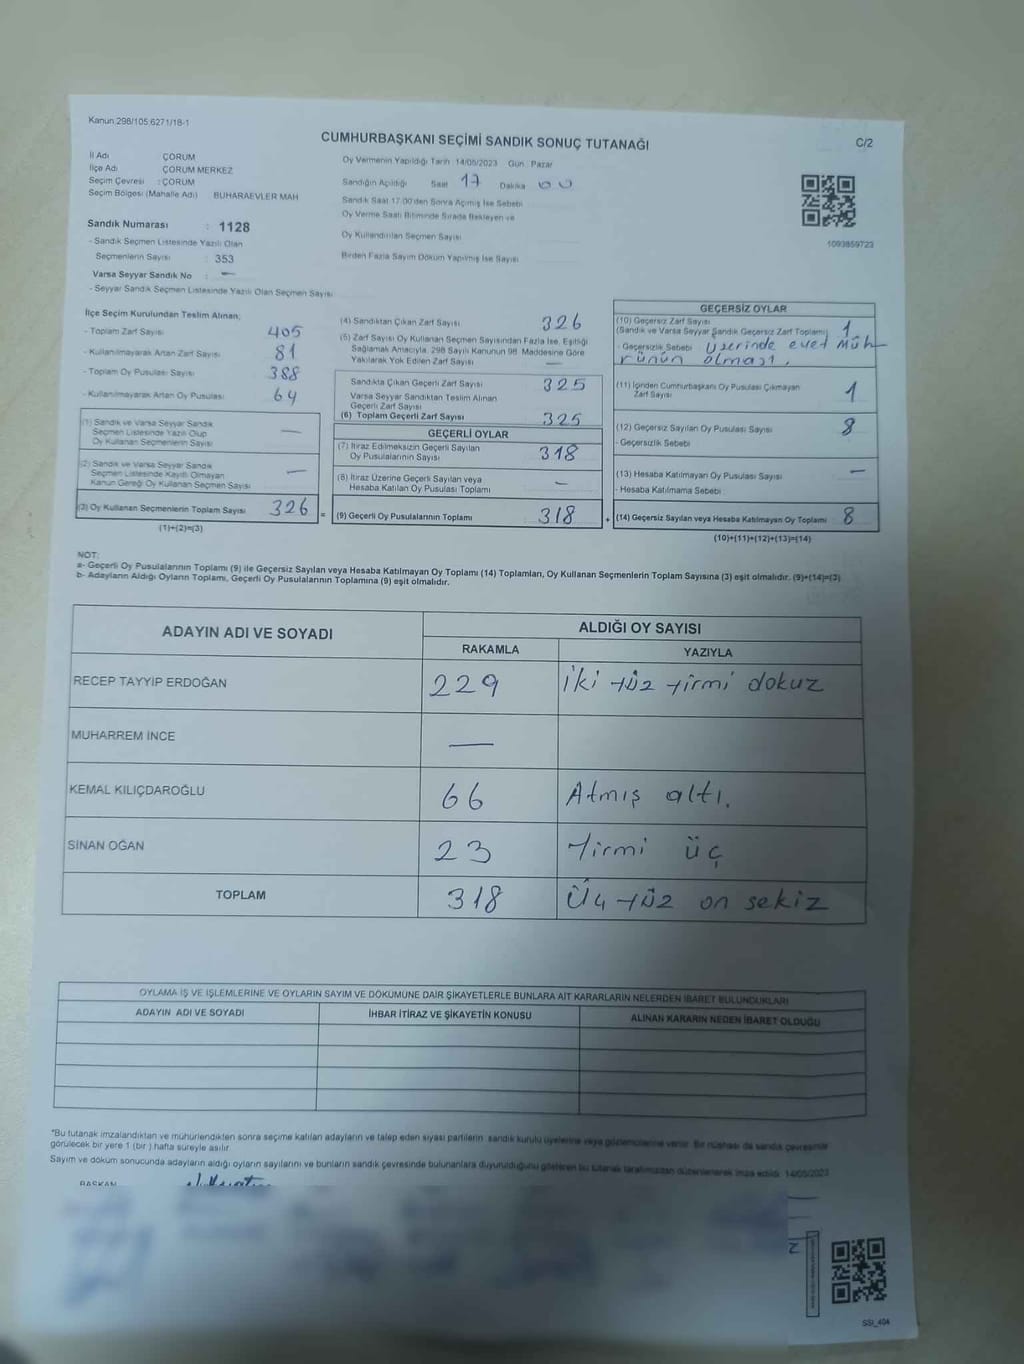 Kanun 298/105.6271/18-1
CUMHURBAŞKANI SEÇİMİ SANDIK SONUÇ TUTANAĞI
C/2
İl Adı ÇORUM
İlçe Adı ÇORUM MERKEZ
Seçim Çevresi : ÇORUM
Seçim Bölgesi (Mahalle Adı) BUHARAEVLER MAH
Oy Vermenin Yapıldığı Tarih 14/05/2023 Gün Pazar
Sandığın Açıldığı Saat 17 Dakika 00
Sandık Saat 17.00'den Sonra Açılmış İse Sebebi
Oy Verme Saati Bitiminde Sırada Bekleyen ve
Oy Kullandırılan Seçmen Sayısı
Birden Fazla Sayım Döküm Yapılmış İse Sayısı
1093859723
Sandık Numarası : 1128
- Sandık Seçmen Listesinde Yazılı Olan
Seçmenlerin Sayısı : 353
Varsa Seyyar Sandık No : —
- Seyyar Sandık Seçmen Listesinde Yazılı Olan Seçmen Sayısı
İlçe Seçim Kurulundan Teslim Alınan;
- Toplam Zarf Sayısı 405
- Kullanılmayarak Artan Zarf Sayısı 81
- Toplam Oy Pusulası Sayısı 388
- Kullanılmayarak Artan Oy Pusulası 64
(1) Sandık ve Varsa Seyyar Sandık
Seçmen Listesinde Yazılı Olup
Oy Kullanan Seçmenlerin Sayısı —
(2) Sandık ve Varsa Seyyar Sandık
Seçmen Listesinde Kayıtlı Olmayan
Kanun Gereği Oy Kullanan Seçmen Sayısı —
(3) Oy Kullanan Seçmenlerin Toplam Sayısı 326 =
(1)+(2)=(3)
(4) Sandıktan Çıkan Zarf Sayısı 326
(5) Zarf Sayısı Oy Kullanan Seçmen Sayısından Fazla İse, Eşitliği
Sağlamak Amacıyla, 298 Sayılı Kanunun 98. Maddesine Göre
Yakılarak Yok Edilen Zarf Sayısı —
Sandıkta Çıkan Geçerli Zarf Sayısı 325
Varsa Seyyar Sandıktan Teslim Alınan
Geçerli Zarf Sayısı
(6) Toplam Geçerli Zarf Sayısı 325
GEÇERLİ OYLAR
(7) İtiraz Edilmeksizin Geçerli Sayılan
Oy Pusulalarının Sayısı 318
(8) İtiraz Üzerine Geçerli Sayılan veya
Hesaba Katılan Oy Pusulası Toplamı —
(9) Geçerli Oy Pusulalarının Toplamı 318 +
GEÇERSİZ OYLAR
(10) Geçersiz Zarf Sayısı
(Sandık ve Varsa Seyyar Sandık Geçersiz Zarf Toplamı) 1
- Geçersizlik Sebebi Üzerinde evet Müh
rünün olması.
(11) İçinden Cumhurbaşkanı Oy Pusulası Çıkmayan
Zarf Sayısı 1
(12) Geçersiz Sayılan Oy Pusulası Sayısı 8
- Geçersizlik Sebebi
(13) Hesaba Katılmayan Oy Pusulası Sayısı —
- Hesaba Katılmama Sebebi
(14) Geçersiz Sayılan veya Hesaba Katılmayan Oy Toplamı 8
(10)+(11)+(12)+(13)=(14)
NOT:
a- Geçerli Oy Pusulalarının Toplamı (9) ile Geçersiz Sayılan veya Hesaba Katılmayan Oy Toplamı (14) Toplamları, Oy Kullanan Seçmenlerin Toplam Sayısına (3) eşit olmalıdır. (9)+(14)=(3)
b- Adayların Aldığı Oyların Toplamı, Geçerli Oy Pusulalarının Toplamına (9) eşit olmalıdır.
ADAYIN ADI VE SOYADI
ALDIĞI OY SAYISI
RAKAMLA YAZIYLA
RECEP TAYYİP ERDOĞAN 229 iki yüz yirmi dokuz
MUHARREM İNCE —
KEMAL KILIÇDAROĞLU 66 Atmış altı.
SİNAN OĞAN 23 Yirmi üç
TOPLAM 318 Üç yüz on sekiz
OYLAMA İŞ VE İŞLEMLERİNE VE OYLARIN SAYIM VE DÖKÜMÜNE DAİR ŞİKAYETLERLE BUNLARA AİT KARARLARIN NELERDEN İBARET BULUNDUKLARI
ADAYIN ADI VE SOYADI İHBAR İTİRAZ VE ŞİKAYETİN KONUSU ALINAN KARARIN NEDEN İBARET OLDUĞU
*Bu tutanak imzalandıktan ve mühürlendikten sonra seçime katılan adayların ve talep eden siyasi partilerin sandık kurulu üyelerine veya gözlemcilerine verilir. Bir nüshası da sandık çevresinde
görülecek bir yere 1 (bir) hafta süreyle asılır
Sayım ve döküm sonucunda adayların aldığı oyların sayılarını ve bunların sandık çevresinde bulunanlara duyurulduğunu gösteren bu tutanak tarafımızdan düzenlenerek imza edildi. 14/05/2023
BAŞKAN
SSI_404